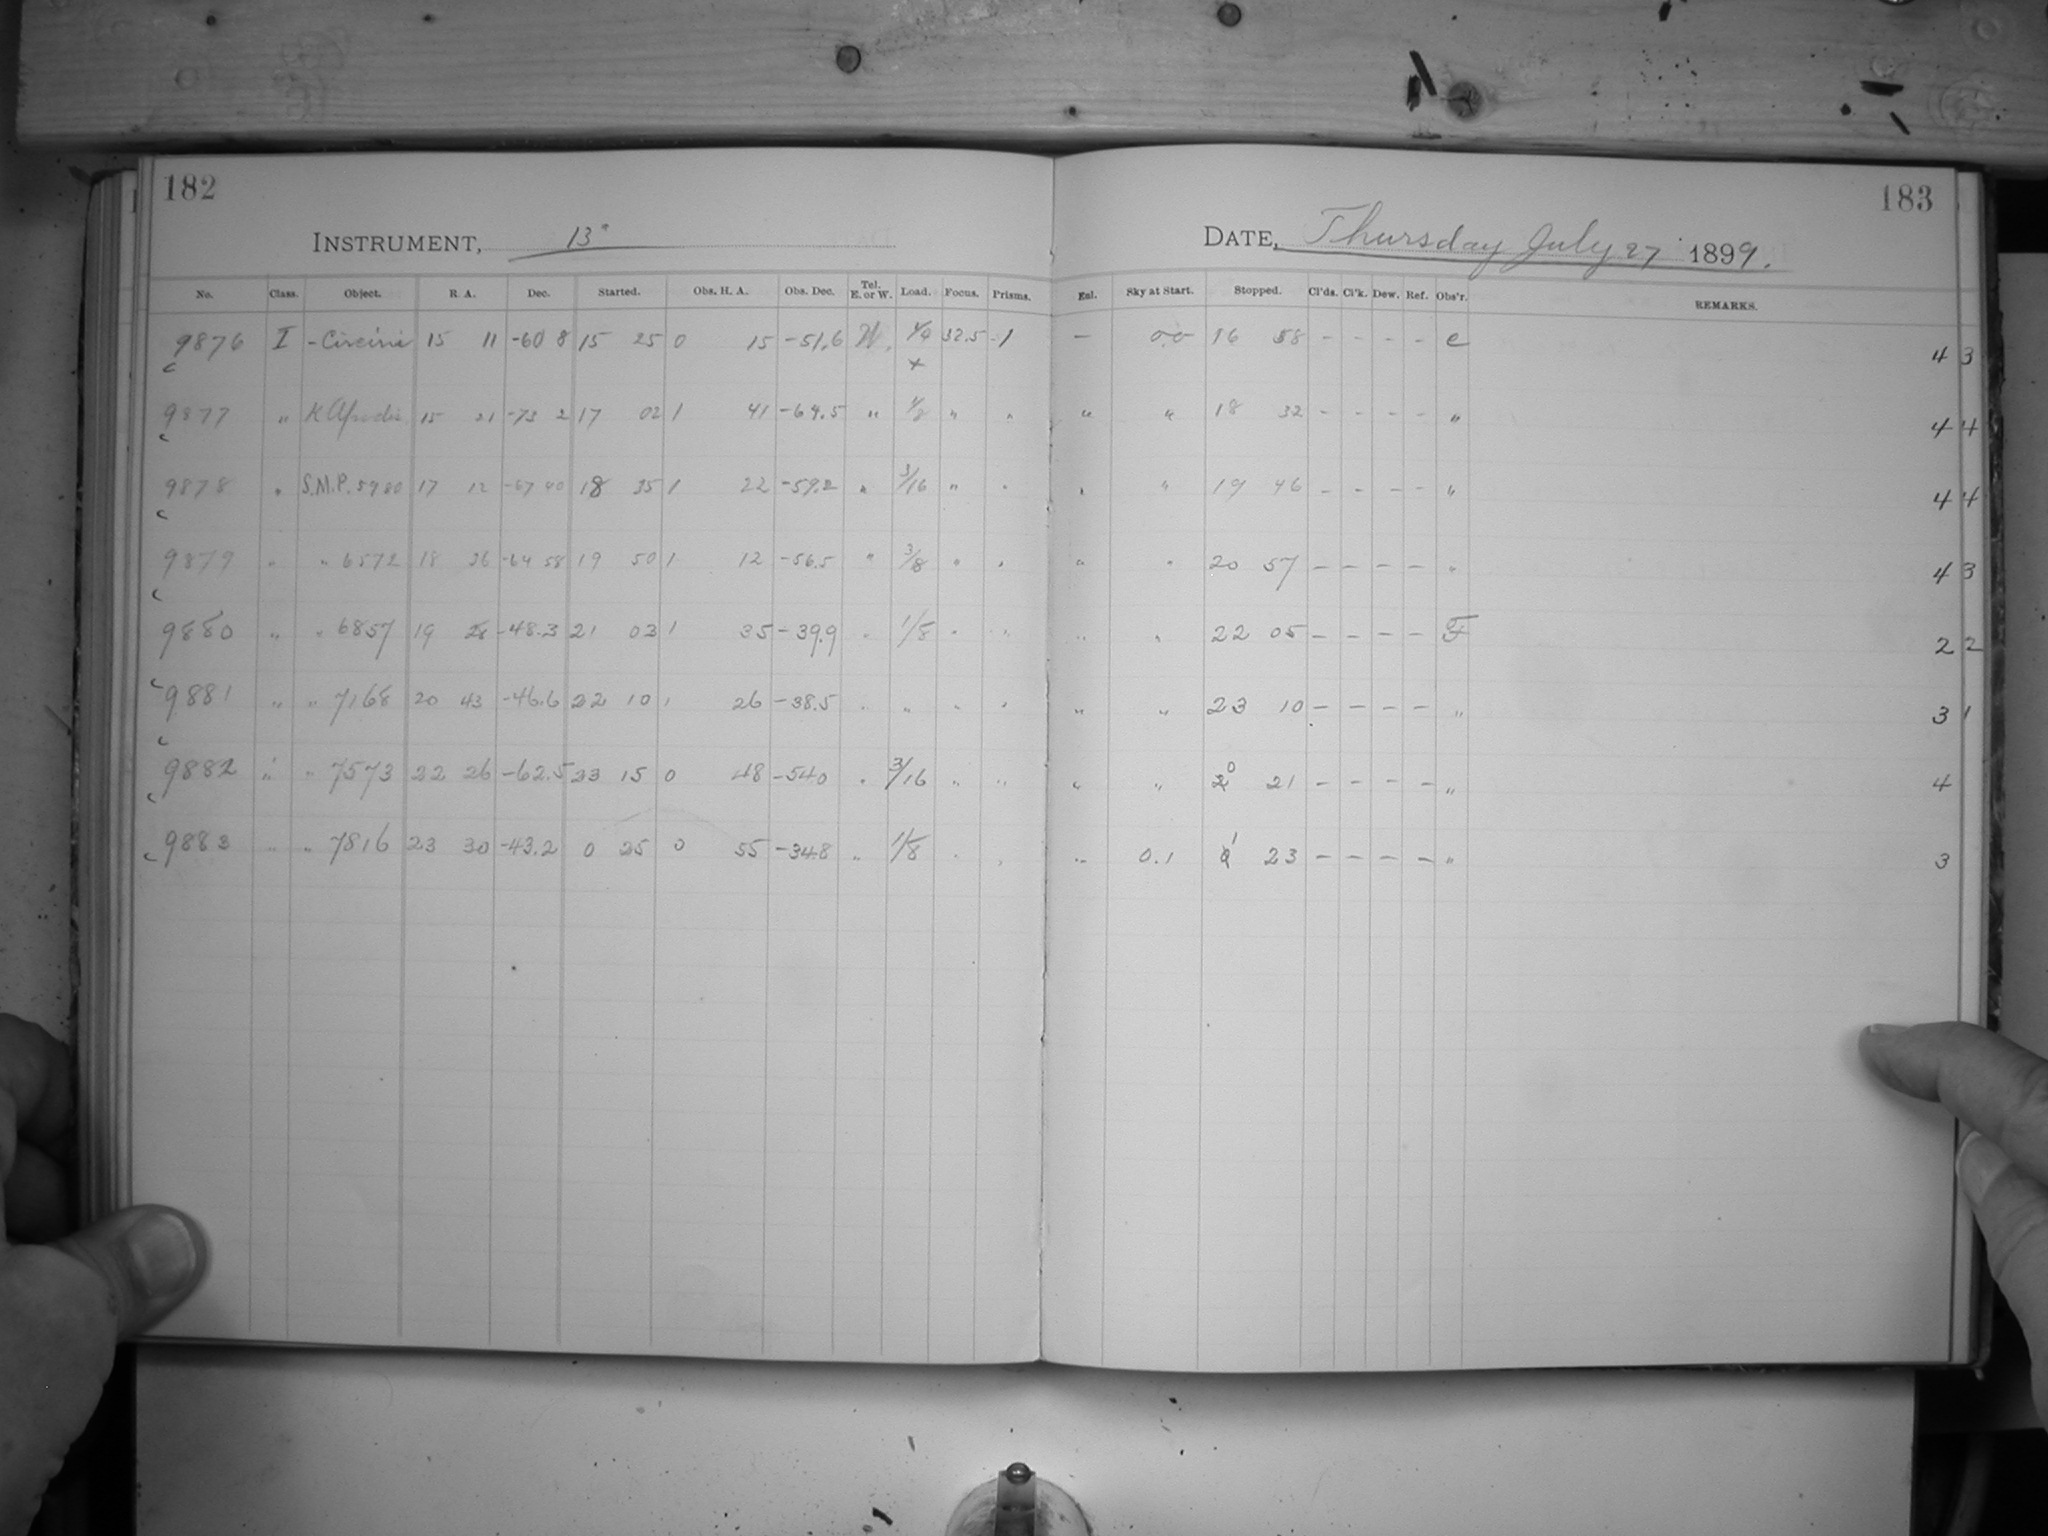 182
INSTRUMENT, 13"
No. Class. Object. R. A. Dec. Started. Obs. H. A. Obs. Dec. Tel. E. or W. Load. Focus. Prisms.
9876 I - Circini 15 11 -60 8 15 25 0 15 -51.6 W. 32.5 -1
9877 " K 15 21 -73 2 17 02 1 41 -64.5 " " "
9878 " S.M.P. 5980 17 12 -67 40 18 35 1 22 -59.2 " 3/16 " "
9879 " " 6572 18 36 -64 58 19 50 1 12 -56.5 " 3/8 " "
9880 " " 6857 19 28 -48.3 21 03 1 35 -39.9 " 1/8 " "
9881 " " 7168 20 43 -46.6 22 10 1 26 -38.5 " " " "
9882 " " 7573 22 26 -62.5 23 15 0 48 -540 " 3/16 " "
9883 " " 7816 23 30 -43.2 0 25 0 55 -348 " 1/8 " "
183
DATE, Thursday July 27 1899.
Enl. Sky at Start. Stopped. Cl'ds. Cl'k. Dew. Ref. Obs'r. REMARKS.
- 0.0 16 58 - - - - e 4 3
" " 18 32 - - - - " 4 4
" " 19 46 - - - - " 4 4
" " 20 57 - - - - " 4 3
" " 22 05 - - - - F 2 2
" " 23 10 - - - - " 3 1
" " 0 21 - - - - " 4
" 0.1 1 23 - - - - " 3